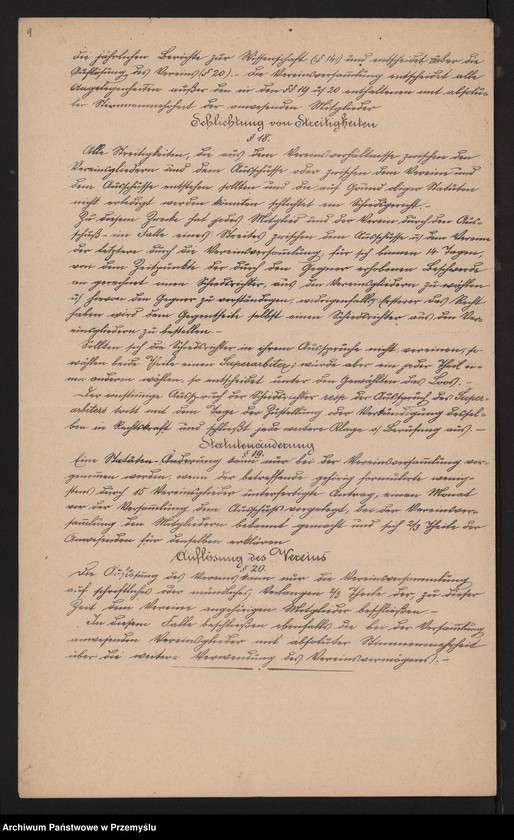 9
die jährlichen Berichte zur Wissenschaft (§ 14) und entscheidet über die
Auflösung des Vereins (§ 20). – Die Vereinsversammlung entscheidet alle
Angelegenheiten außer den in den §§ 19 u 20 enthaltenen mit absolu-
ter Stimmenmehrheit der anwesenden Mitglieder
Schlichtung von Streitigkeiten
§ 18.
Alle Streitigkeiten, die aus dem Vereinsverhältnisse zwischen den
Vereinsgliedern und dem Ausschusse oder zwischen dem Vereine und
dem Ausschusse entstehen sollten und die auf Grund obiger Statuten
nicht erledigt werden könnten schlichtet ein Schiedsgericht. –
Zu diesem Zwecke hat jedes Mitglied und der Verein, durch den Aus-
schuß im Falle eines Streites zwischen dem Ausschusse u. dem Vereine
der letztere durch die Vereinsversammlung, für sich binnen 14 Tagen,
von dem Zeitpunkte der durch den Gegner erhobenen Beschwerde
an gerechnet einen Schiedsrichter, aus den Vereinsgliedern zu wählen
u. hievon den Gegner zu verständigen, widrigenfalls Ersterer das Recht
haben wird dem Gegentheile selbst einen Schiedsrichter aus den Ver-
einsgliedern zu bestellen. –
Sollten sich die Schiedsrichter in ihrem Ausspruche nicht vereinen, so
wählen beide Theile einen Superarbiter; würde aber ein jeder Theil ei-
nen anderen wählen, so entscheidet unter den Gewählten das Loos. –
Der einstimmige Ausspruch der Schiedsrichter resp. der Ausspruch des Super-
arbiters tritt mit dem Tage der Zustellung oder Verkündigung dessel-
ben in Rechtskraft und schließt jede weitere Klage o. Berufung aus. –
Statutenänderung
§ 19.
Eine Statuten-Änderung kann nur bei der Vereinsversammlung vor-
genommen werden, wenn der betreffende gehörig formulirte wenig-
stens durch 15 Vereinsglieder unterfertigte Antrag, einen Monat
vor der Versammlung dem Ausschuß vorgelegt, bei der Vereinsver-
sammlung den Mitgliedern bekannt gemacht und sich 2/3 Theile der
Anwesenden für denselben erklären
Auflösung des Vereins
§ 20.
Die Auflösung des Vereins kann nur die Vereinsversammlung
auf schriftliches oder mündliches Verlangen 2/3 Theile der zu dieser
Zeit dem Vereine angehörigen Mitglieder beschließen. –
In diesem Falle beschließen ebenfalls die bei der Versammlung
anwesenden Vereinsglieder mit absoluter Stimmenmehrheit
über die weitere Verwendung des Vereinsvermögens. –
Archiwum Państwowe w Przemyślu